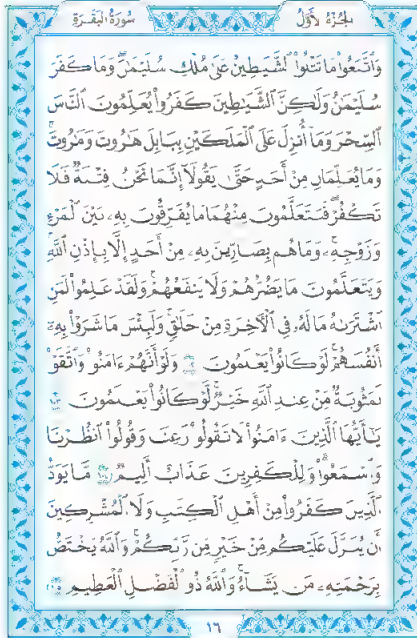 سُورَةُ البَقَـرَةِ الجُزْءُ الأَوَّلُ
وَٱتَّبَعُوا۟ مَا تَتْلُوا۟ ٱلشَّيَـٰطِينُ عَلَىٰ مُلْكِ سُلَيْمَـٰنَ وَمَا كَفَرَ
سُلَيْمَـٰنُ وَلَـٰكِنَّ ٱلشَّيَـٰطِينَ كَفَرُوا۟ يُعَلِّمُونَ ٱلنَّاسَ
ٱلسِّحْرَ وَمَآ أُنزِلَ عَلَى ٱلْمَلَكَيْنِ بِبَابِلَ هَـٰرُوتَ وَمَـٰرُوتَ
وَمَا يُعَلِّمَانِ مِنْ أَحَدٍ حَتَّىٰ يَقُولَآ إِنَّمَا نَحْنُ فِتْنَةٌ فَلَا
تَكْفُرْ فَيَتَعَلَّمُونَ مِنْهُمَا مَا يُفَرِّقُونَ بِهِۦ بَيْنَ ٱلْمَرْءِ
وَزَوْجِهِۦ وَمَا هُم بِضَآرِّينَ بِهِۦ مِنْ أَحَدٍ إِلَّا بِإِذْنِ ٱللَّهِ
وَيَتَعَلَّمُونَ مَا يَضُرُّهُمْ وَلَا يَنفَعُهُمْ وَلَقَدْ عَلِمُوا۟ لَمَنِ
ٱشْتَرَىٰهُ مَا لَهُۥ فِى ٱلْـَٔاخِرَةِ مِنْ خَلَـٰقٍ وَلَبِئْسَ مَا شَرَوْا۟ بِهِۦٓ
أَنفُسَهُمْ لَوْ كَانُوا۟ يَعْلَمُونَ ١٠٢ وَلَوْ أَنَّهُمْ ءَامَنُوا۟ وَٱتَّقَوْا۟
لَمَثُوبَةٌ مِّنْ عِندِ ٱللَّهِ خَيْرٌ لَّوْ كَانُوا۟ يَعْلَمُونَ ١٠٣
يَـٰٓأَيُّهَا ٱلَّذِينَ ءَامَنُوا۟ لَا تَقُولُوا۟ رَٰعِنَا وَقُولُوا۟ ٱنظُرْنَا
وَٱسْمَعُوا۟ وَلِلْكَـٰفِرِينَ عَذَابٌ أَلِيمٌ ١٠٤ مَّا يَوَدُّ
ٱلَّذِينَ كَفَرُوا۟ مِنْ أَهْلِ ٱلْكِتَـٰبِ وَلَا ٱلْمُشْرِكِينَ
أَن يُنَزَّلَ عَلَيْكُم مِّنْ خَيْرٍ مِّن رَّبِّكُمْ وَٱللَّهُ يَخْتَصُّ
بِرَحْمَتِهِۦ مَن يَشَآءُ وَٱللَّهُ ذُو ٱلْفَضْلِ ٱلْعَظِيمِ ١٠٥
١٦